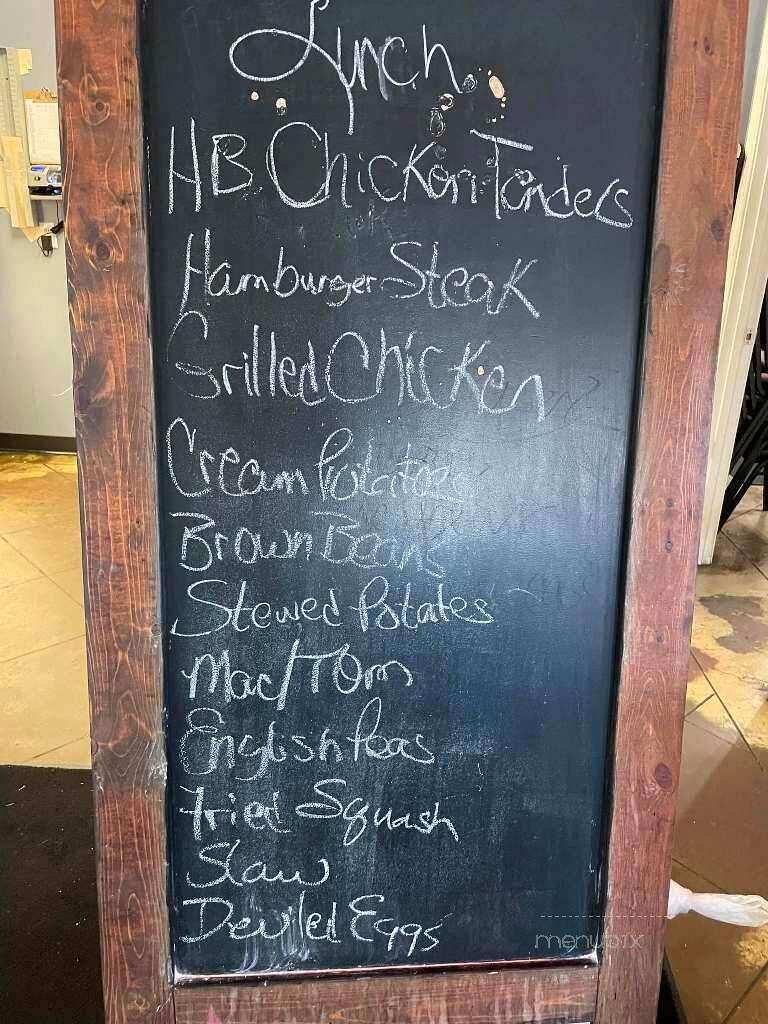 Lunch
HB Chicken Tenders
Hamburger Steak
Grilled Chicken
Cream Potatoes
Brown Beans
Stewed Potates
Mac/Tom
English Peas
Fried Squash
Slaw
Deviled Eggs
menupix